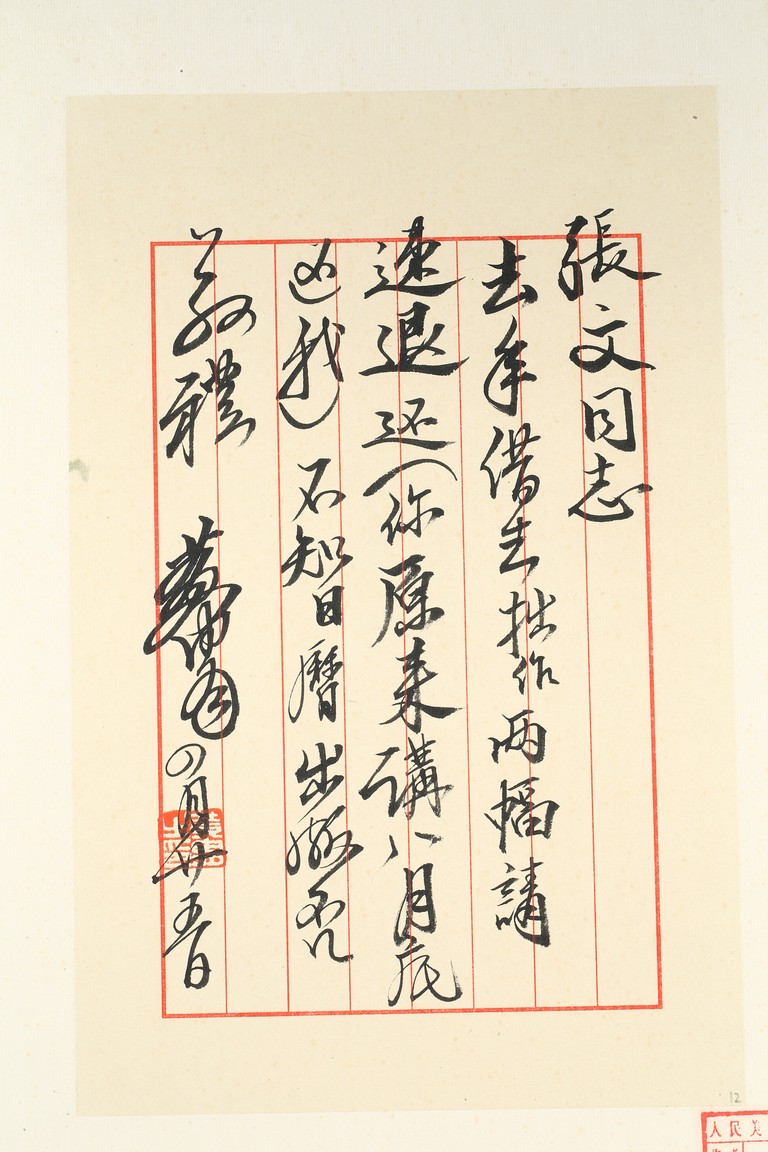 張文同志
去年借去拙作兩幅請
速退还（你原来講八月底
还我）不知日曆出版否
敬禮
四月廿五日
12
人民美